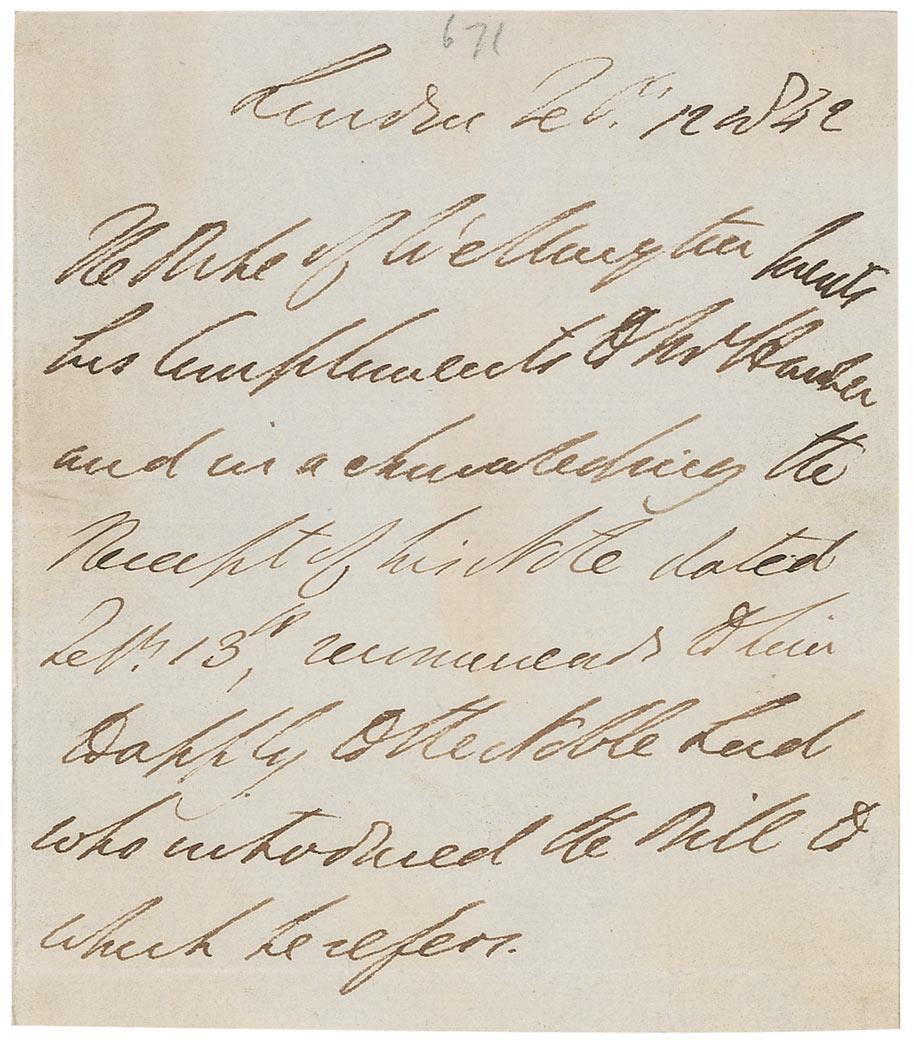 671
London Feb. 12 1842
The Duke of Wellington presents
his Compliments to Mr
and in acknowledging the
Receipt of his Note dated
Feb. 13, recommends to him
to apply to the Noble Lord
who introduced the Bill to
which he refers.